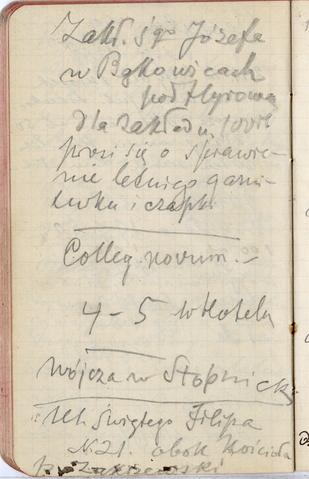 Zakł. św. Józefa
w Bąkowicach
pod Chyrowem
dla zakładu
prosi się o sprawie-
nie letniego garni-
turku i czapki
Colleg. novum. –
4 – 5 w Hotelu
Wójcza w Stopnick
Ul. Świętego Filipa
N. 21. obok Kościoła
Zakrzewski